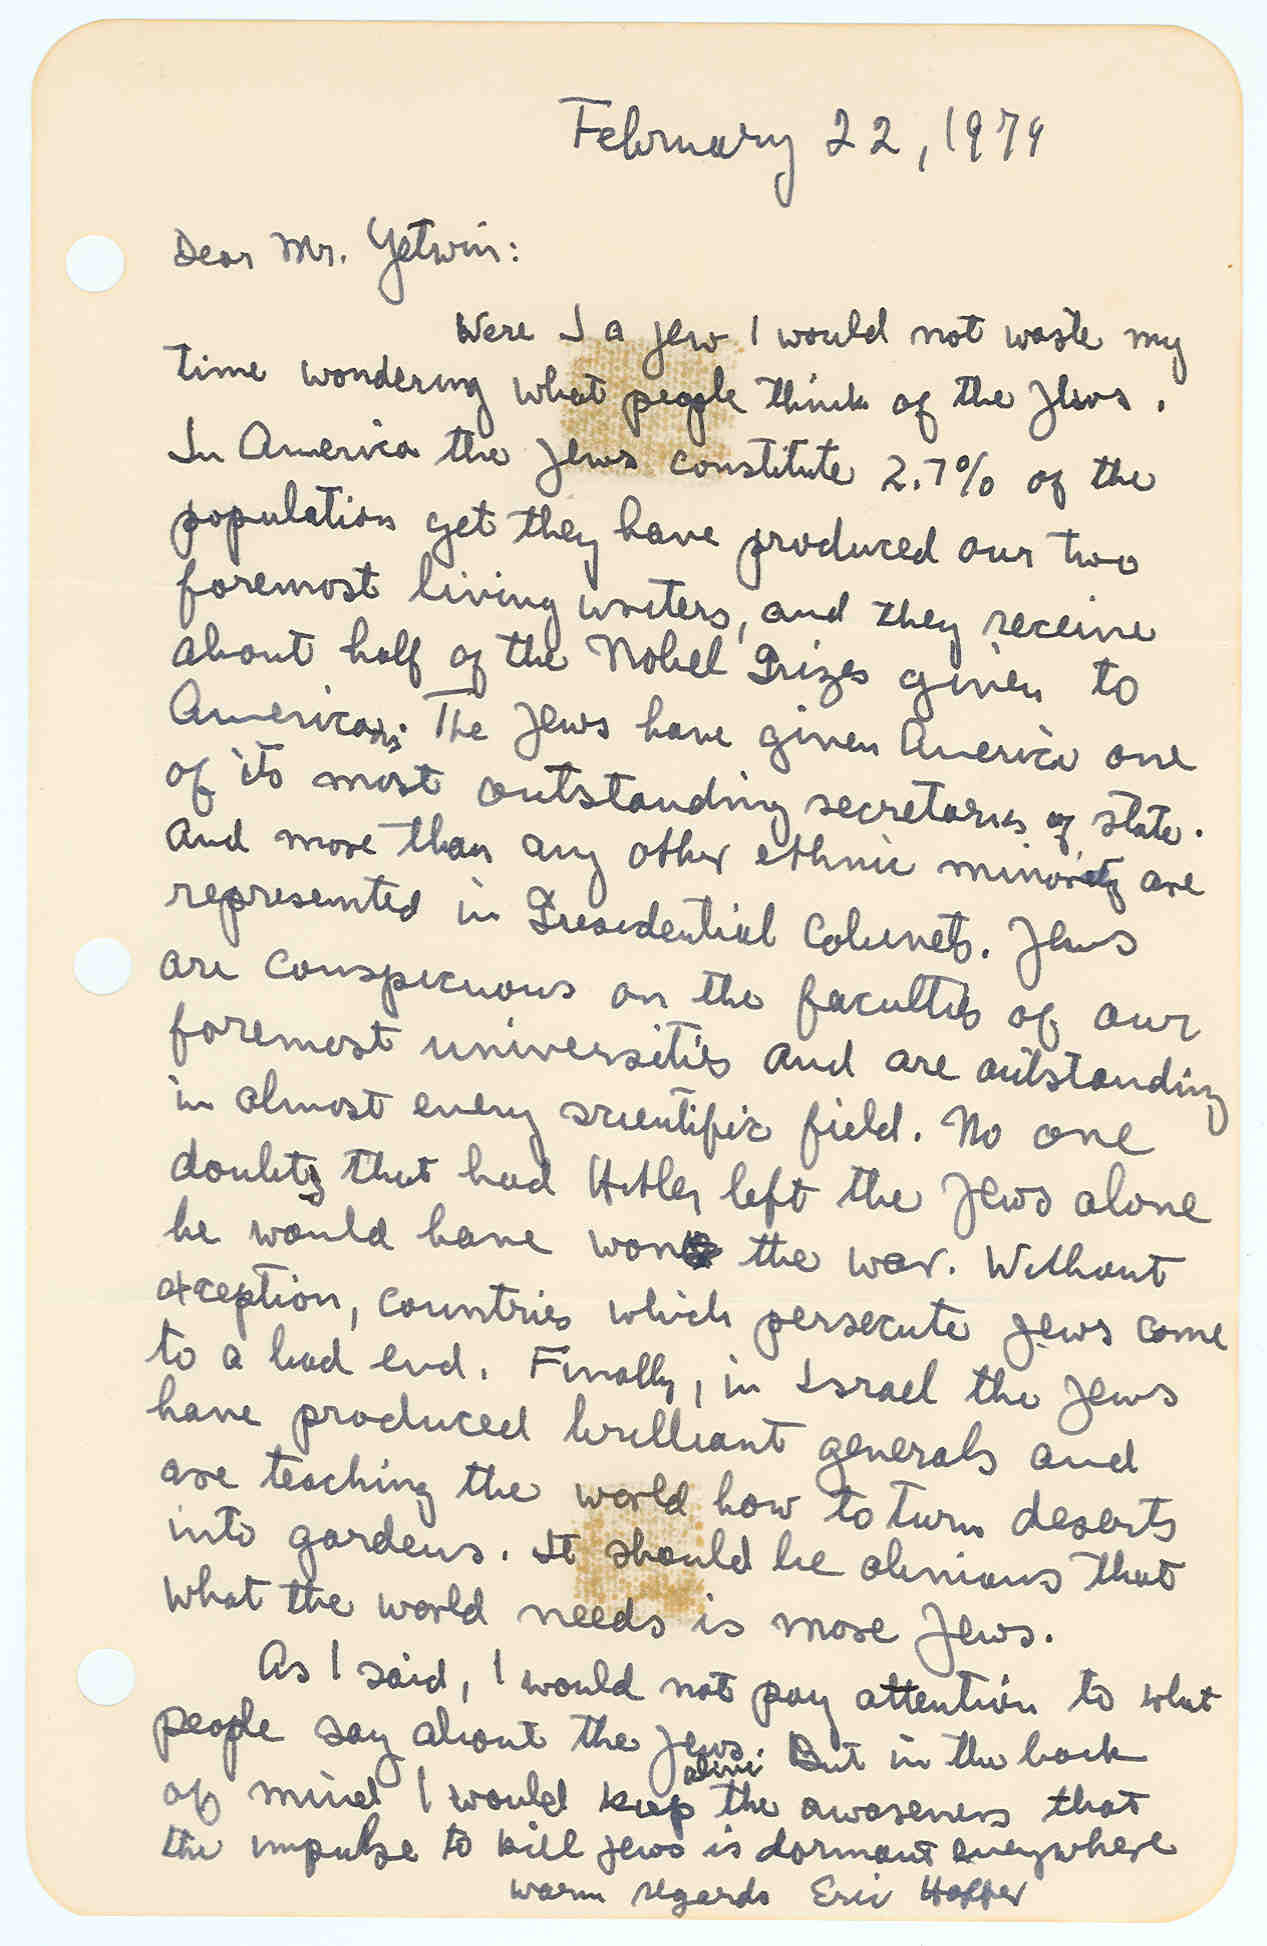 February 22, 1979
Dear Mr. Yetwin:
Were I a Jew I would not waste my
time wondering what people think of the Jews.
In America the Jews constitute 2.7% of the
population yet they have produced our two
foremost living writers, and they receive
about half of the Nobel Prizes given to
Americans. The Jews have given America one
of its most outstanding secretaries of state.
And more than any other ethnic minority are
represented in Presidential Cabinets. Jews
are conspicuous on the faculties of our
foremost universities and are outstanding
in almost every scientific field. No one
doubts that had Hitler left the Jews alone
he would have won the war. Without
exception, countries which persecute Jews come
to a bad end. Finally, in Israel the Jews
have produced brilliant generals and
are teaching the world how to turn deserts
into gardens. It should be obvious that
what the world needs is more Jews.
As I said, I would not pay attention to what
people say about the Jews. But in the back
of mind I would keep alive the awareness that
the impulse to kill Jews is dormant everywhere
Warm regards Eric Hoffer